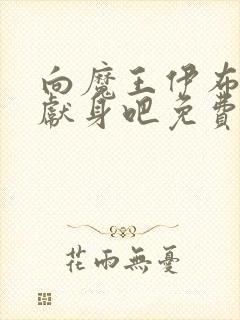 向魔王伊布
獻身吧免費
花雨無憂